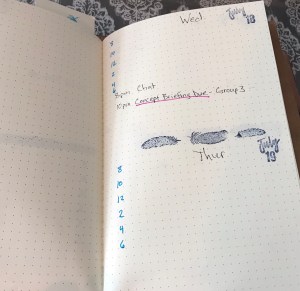 Wed
July
18
8
10
12
2
4
6
Chat
10pm Concept Briefing due - Group 3
Thur
July
19
8
10
12
2
4
6